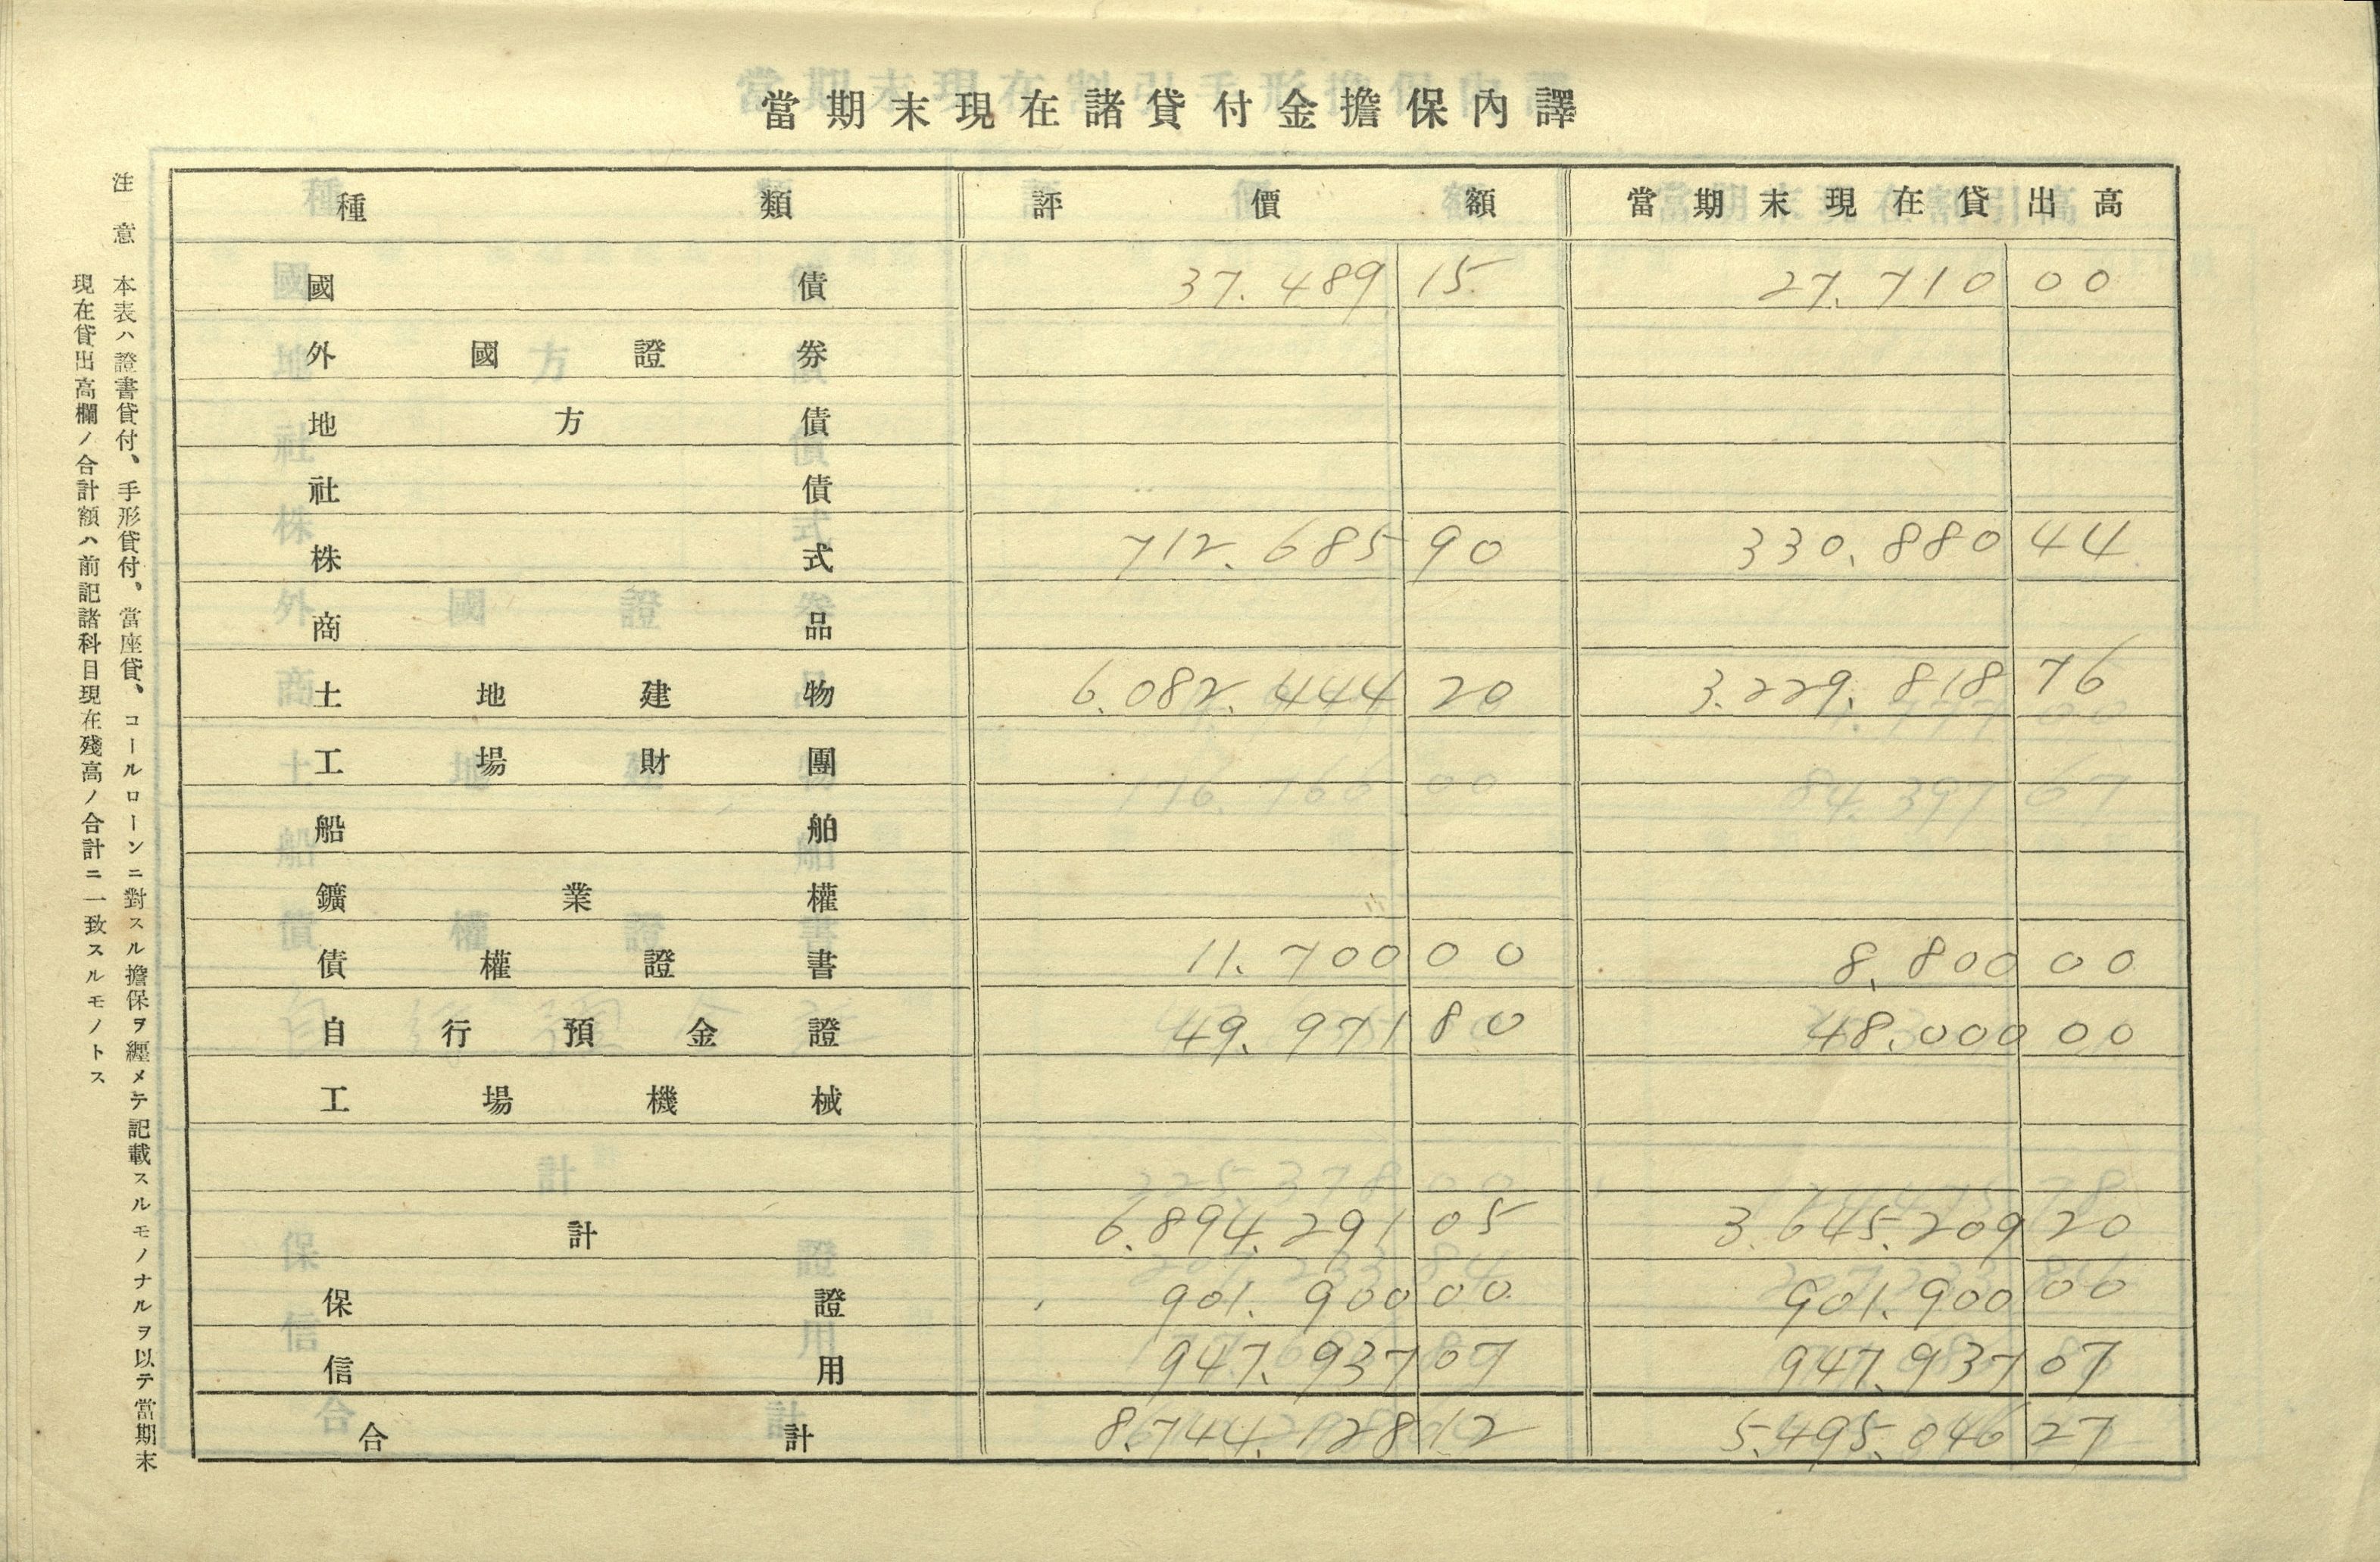 當期末現在諸貸付金擔保內譯
種類 評價額 當期末現在貸出高
國債 37.489 15 27.710 00
外國證券
地方債
社債
株式 712.685 90 330.880 44
商品
土地建物 6.082.444 20 3.229.818 76
工場財團
船舶
鑛業權
債權證書 11.700 00 8.800 00
自行預金證 49.971 80 48.000 00
工場機械
計 6.894.291 05 3.645.209 20
保證 901.900 00 901.900 00
信用 947.937 07 947.937 07
合計 8.744.128 12 5.495.046 27
注意 本表ハ證書貸付、手形貸付、當座貸、コールローンニ對スル擔保ヲ纒メテ記載スルモノナルヲ以テ當期末
現在貸出高欄ノ合計額ハ前記諸科目現在殘高ノ合計ニ一致スルモノトス